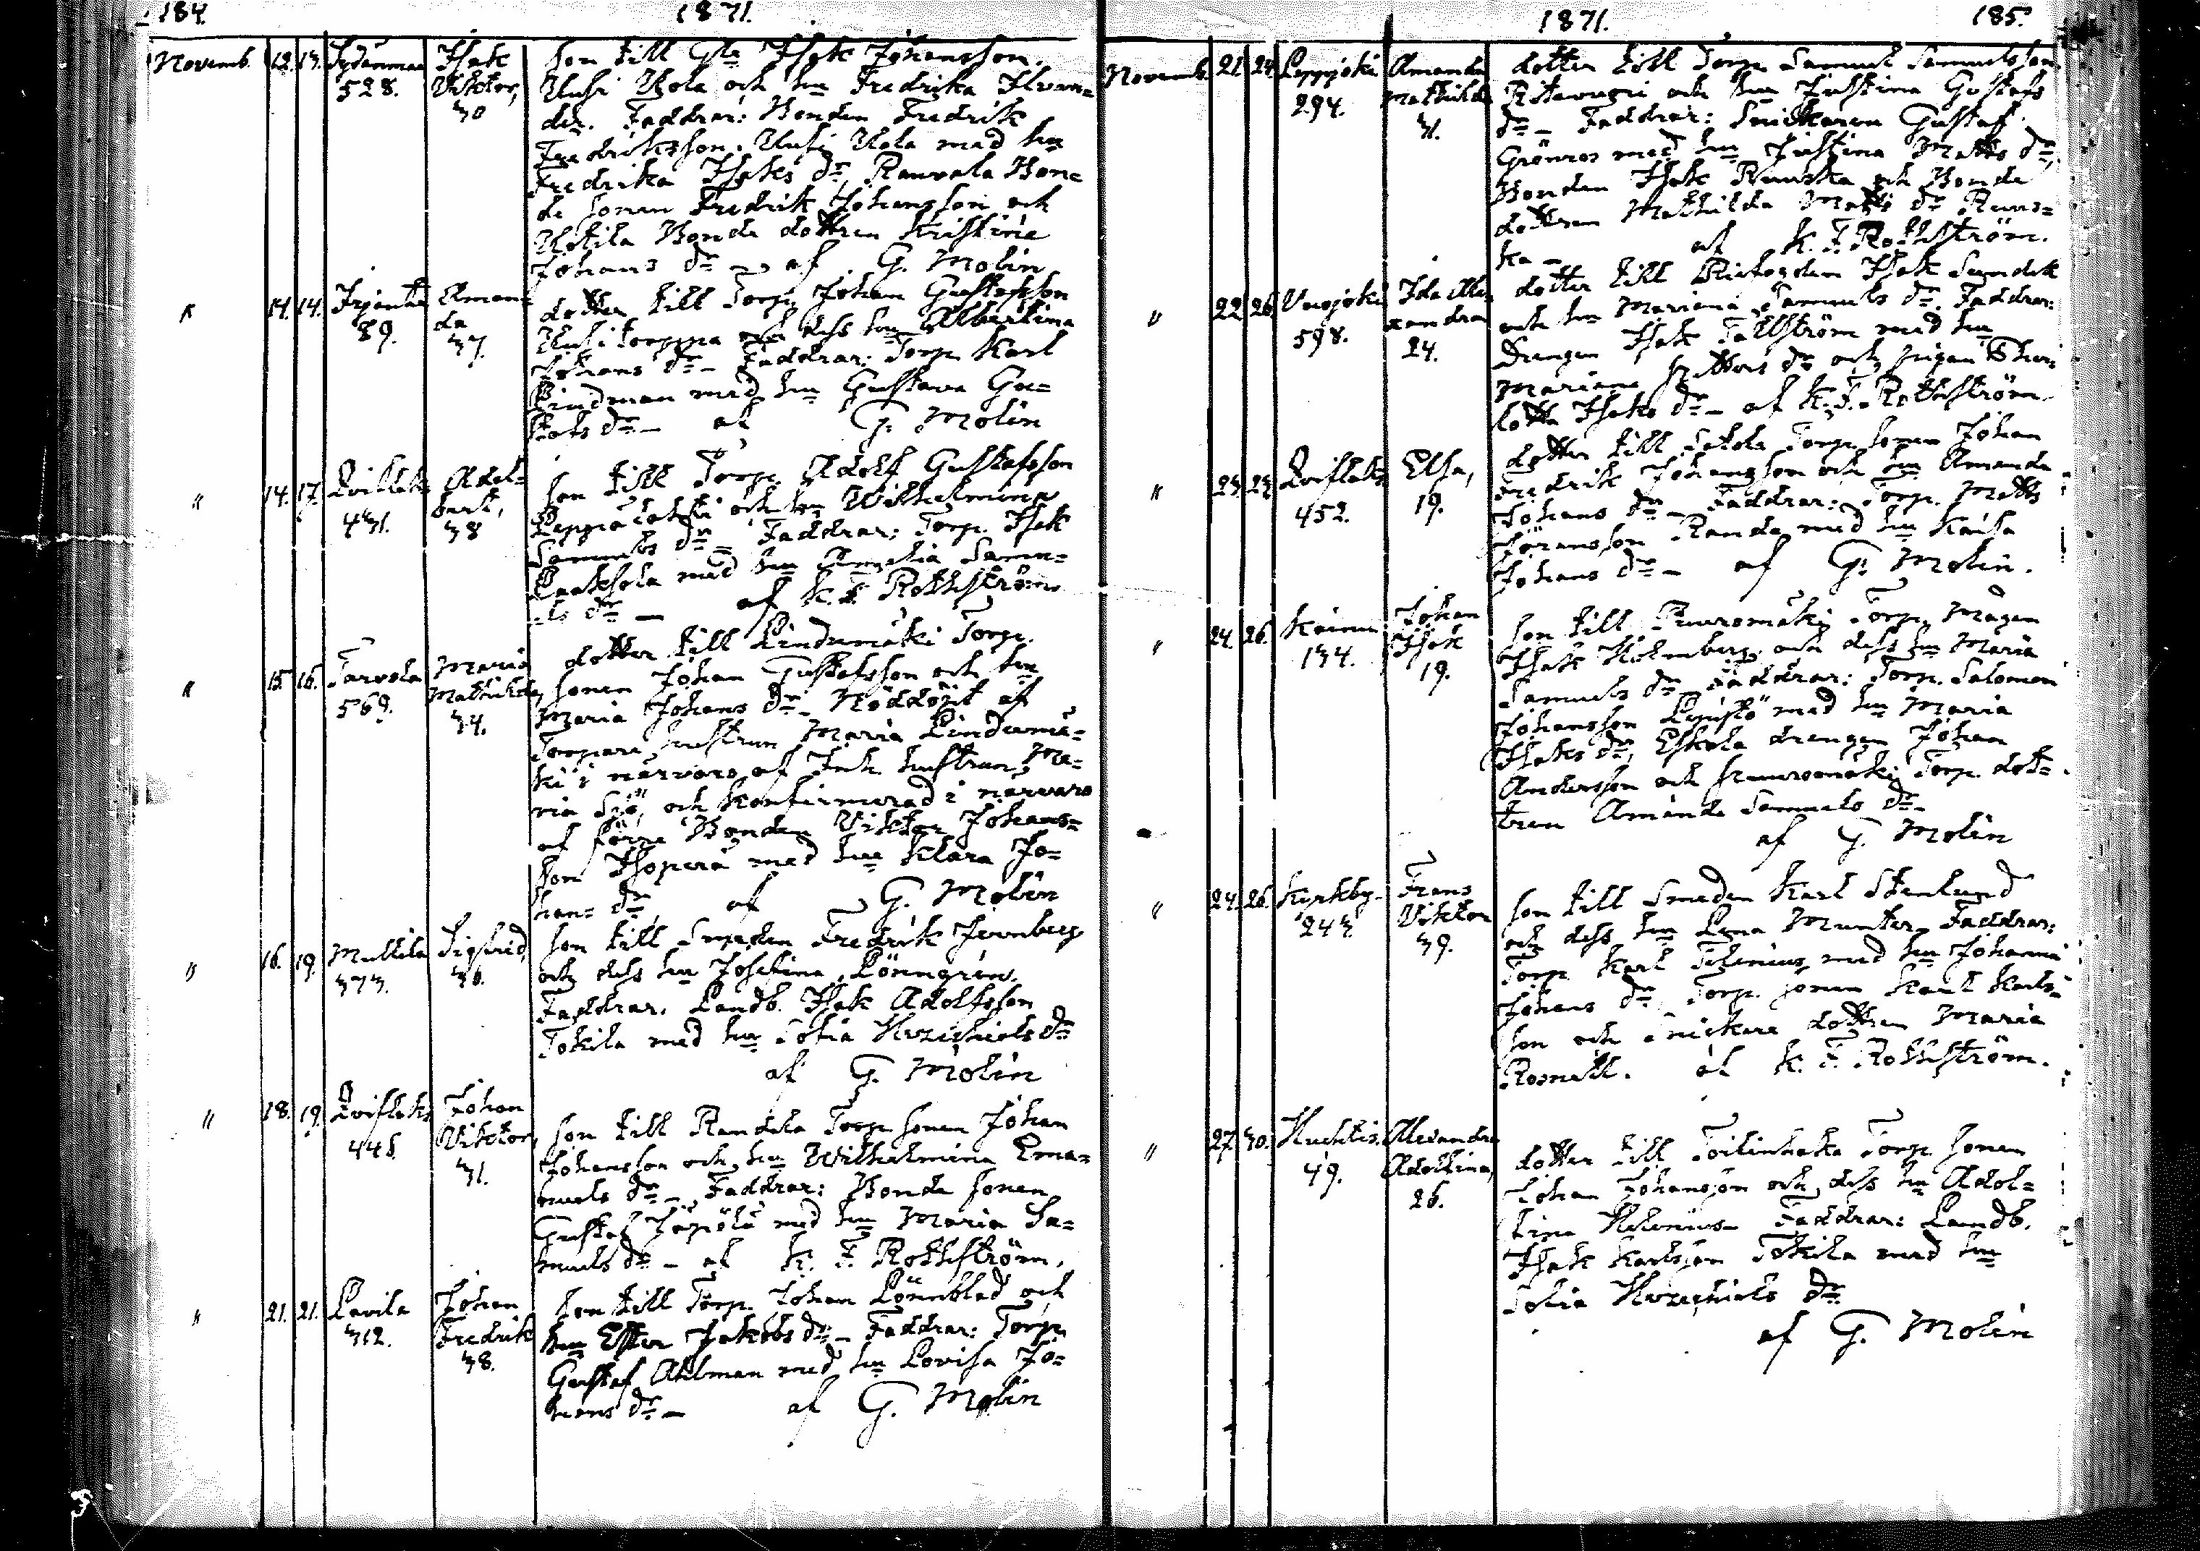 184.
1871.
Novemb. 12. 13. Sydänmaa Isak
528. Viktor,
30
son till Gla Isak Johansson
Uusi Uola och hu Fredrika
der. Faddrar: Bonden Fredrik
Fredriksson Uusi Uola med hu
Fredrika Isaks dr, Rauvala Bon=
de sonen Fredrik Johansson och
Uotila Bonde dottren Kristina
Johans dr – af G. Molin
" 14. 14. Irjanta Aman
89. da
37.
dotter till Torp. Johan Gustafsson
Uusitorppa och dess hu Albertina
Johans dr – Faddrar: Torp. Karl
Lindman med hu Gustava Gu=
stafs dr – af G. Molin
" 14. 17. Loiflaks Adel=
431. bert,
38
son till Torp. Adolf Gustafsson
och hu Wilhelmina
Samuels dr – Faddrar: Torp. Isak
med hu Amalia Samu=
els dr – af K. F. Rothström
" 15. 16. Tarvola Maria
569. Mathilda,
34.
dotter till Lindumäki Torp.
sonen Johan Gustafsson och hu
Maria Johans dr – Nöddöpt af
Torpare hustrun Maria Lindumä=
ki i närvaro af Inh. hustrun Ma=
ria Sjö, och konfirmerad i närvaro
af förre Bonden Viktor Johans=
son Isoperä med hu Klara Jo=
hans dr af G. Molin
" 16. 19. Mullila Sigfrid,
373. 36.
son till Smeden Fredrik Jernberg
och dess hu Josefina Lönngrén.
Faddrar. Landb. Isak Adolfsson
Tokila med hu Sofia Hezechiels dr
af G. Molin
" 18. 19. Loiflaks Johan
445. Viktor,
31.
son till Randala Torp. sonen Johan
Johansson och hu Wilhelmina Ema=
nuels dr – Faddrar: Bonde sonen
Gustaf Jäpölä med hu Maria Sa=
muels dr – af K. F. Rothström.
" 21. 21. Lavila Johan
312. Fredrik
38.
son till Torp. Johan Lönnblad och
hu Ester Jakobs dr – Faddrar: Torp.
Gustaf Ahlman med hu Lovisa Jo=
hans dr – af G. Molin
1871.
185.
Novemb. 21. 24. Leppjoki Amanda
294. Mathilda
31.
dotter till Torp. Samuel Samuelsson
och hu Justina Gustafs
dr – Faddrar: Snickaren Gustaf
Grönros med hu Justina Matts dr,
Bonden Isak Ruuska och Bonde
dottren Mathilda Matts dr Ruus=
ka – af K. F. Rothström.
" 22. 26. Vuojoki Ida Alex
598. xandra
24.
dotter till Isak Sundvik
och hu Mariana Samuels dr. Faddrar:
Drengen Isak Tallström med hu
Mariana dr och pigan Char=
lotta Isaks dr – af K. F. Rothström.
" 23. 24. Loiflaks Elsa,
452. 19.
dotter till Torp. sonen Johan
Fredrik Johansson och hu Amanda
Johans dr – Faddrar: Torp. Matts
Göransson Randa med hu Kaisa
Johans dr – af G. Molin.
" 24. 26. Kainu Johan
134. Isak
19.
son till Torp. Mågen
Isak Holmberg och dess hu Maria
Samuels dr Faddrar: Torp. Salomon
Johansson med hu Maria
Isaks dr, Eskola drengen Johan
Andersson och Torp. dot=
tren Amanda Samuels dr –
af G. Molin
" 24. 26. Kyrkby. Frans
243. Viktor
39.
son till Smeden Karl Stenlund
och dess hu Lena Munter. Faddrar:
Torp. Karl med hu Johanna
Johans dr, Torp. sonen Karl Karls=
son och Snickare dottren Maria
Rosnell. af K. F. Rothström.
" 27. 30. Huhtis. Alexandra
49. Adolfina,
26.
dotter till Torp. sonen
Johan Johansson och dess hu Adol=
fina Helenius – Faddrar: Landb.
Isak Karlsson Tokila med hu
Sofia Hezechiels dr
af G. Molin